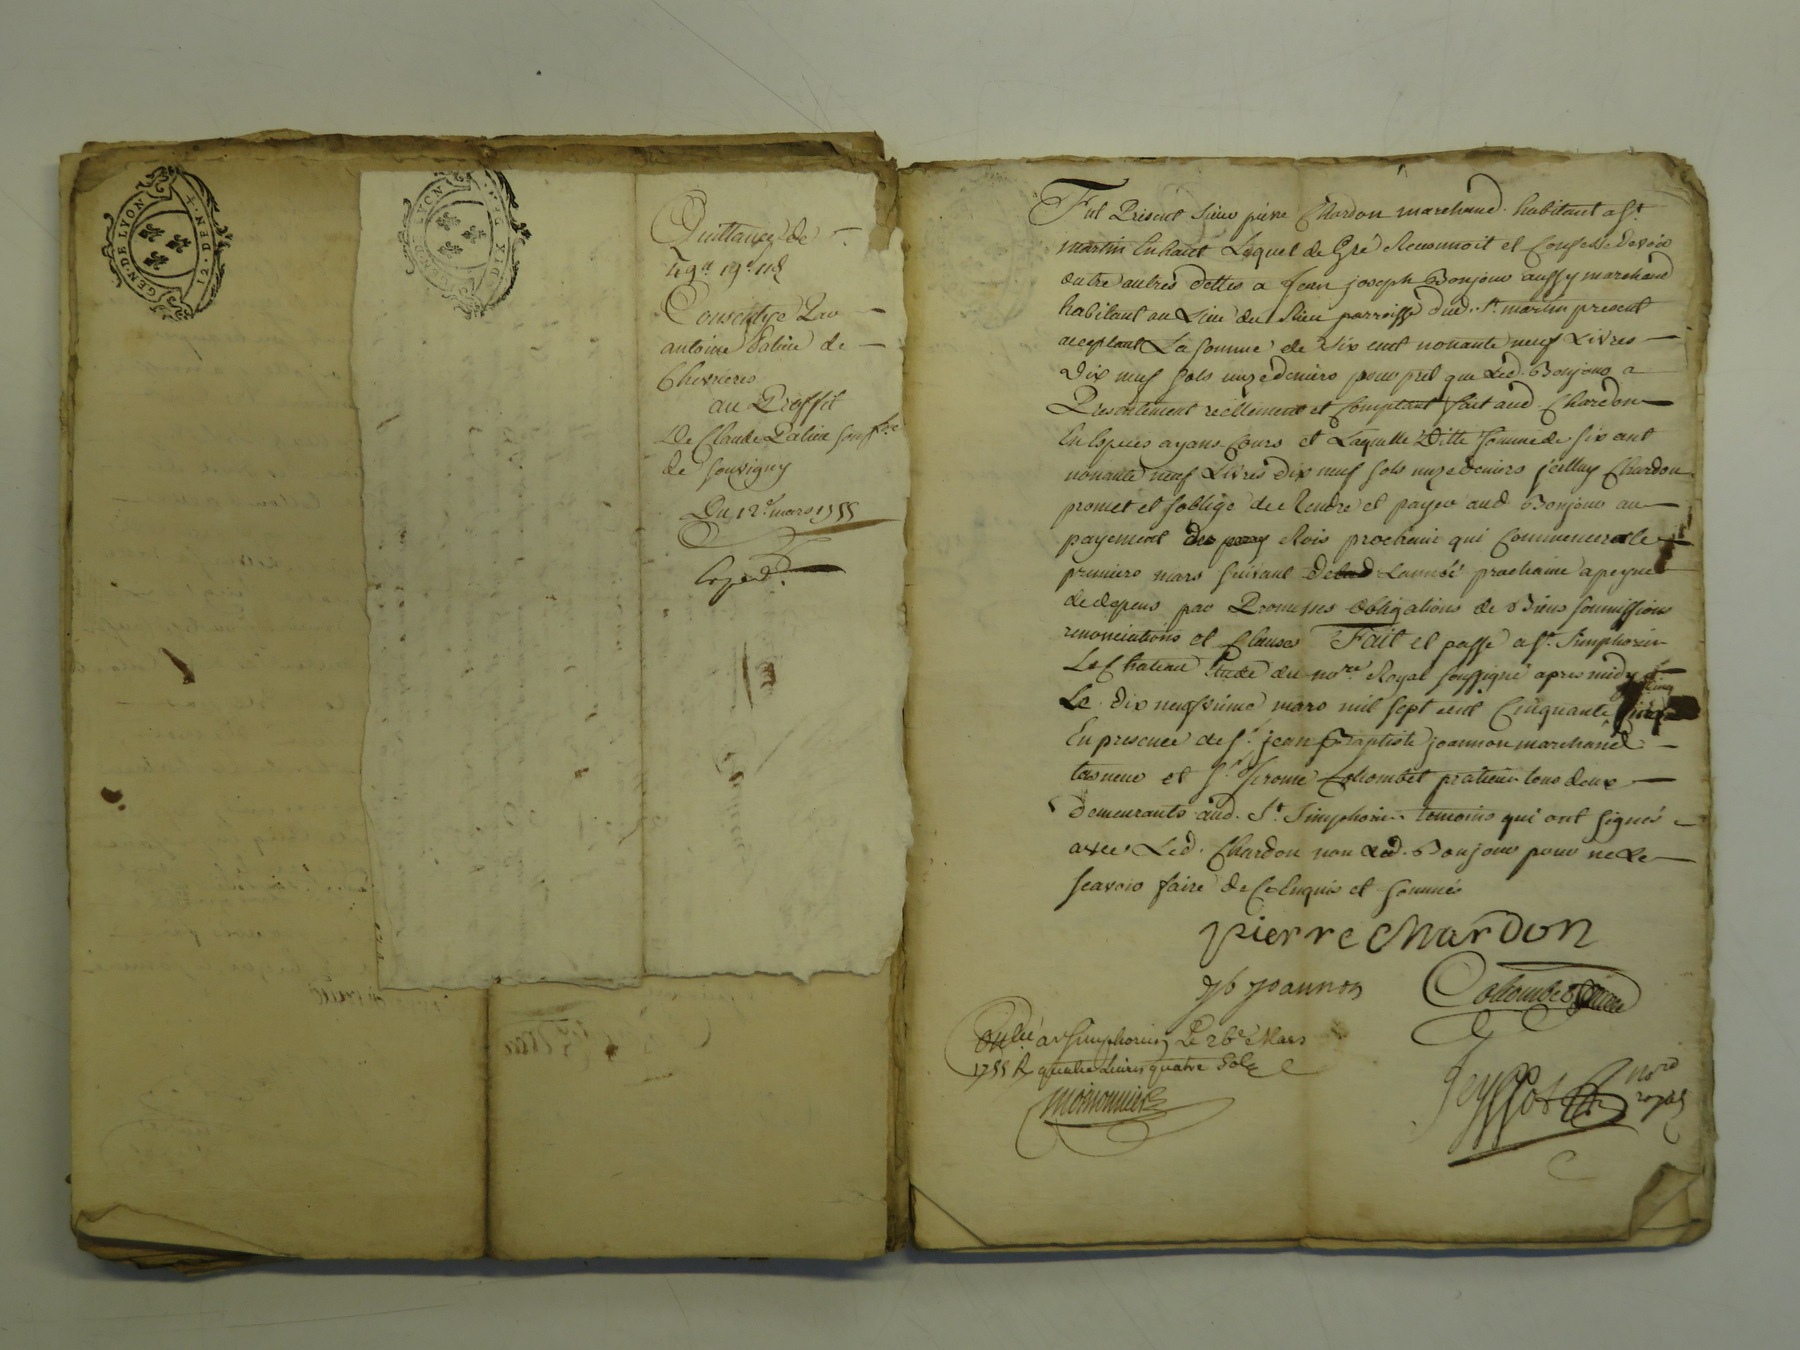 GEN·DE LYON
12·DEN·
GEN·DE LYON
DIX DEN
Quittance de
Consentye Par
antoine Palin de
Chevrieres
au Proffit
De Claude Palin
de souvigny
Du 12e mars 1755
Exped.
Fut Present sieur pierre Chardon marchand habitant a st.
martin En haut Lequel de Gré Reconnoit et Confesse devoir
outre autres dettes a Jean joseph Bonjour aussy marchand
habitant au Lieu du Rieu parroisse dud. st. martin present
acceptant La somme de six cent nonante neuf Livres
Dix neuf sols unze deniers pour pret que Led. Bonjour a
Presentement reellement et comptant fait aud Chardon
En Especes ayans Cours et Laquelle Ditte somme de six cent
nonante neuf Livres dix neuf sols unze deniers icelluy Chardon
promet et soblige de Rendre et payer aud Bonjour au
payement des Rois prochain qui Commencera le
premiers mars suivant Lannée prochaine a peyne
de depens par Promesses obligations de Biens soumissions
renonciations et Clauses Fait et passé a st. Simphorien
Le Chateau Etude du nore. Royal soussigné apres midy
Le dix neufvieme mars mil sept cent Cinquante cinq
En presence de sr. jean Baptiste joannon marchand
taneur et sr. Jerome Colombet praticien tous deux
Demeurants aud. St. Simphorien temoins qui ont signés
avec Led. Chardon non Led. Bonjour pour ne Le
scavoir faire de Ce Enquis et sommés
pierre Chardon
jb joannon
Colombet
Conllé a st simphorien Le 26e Mars
1755 R quatre Livres quatre sols
nore
royal